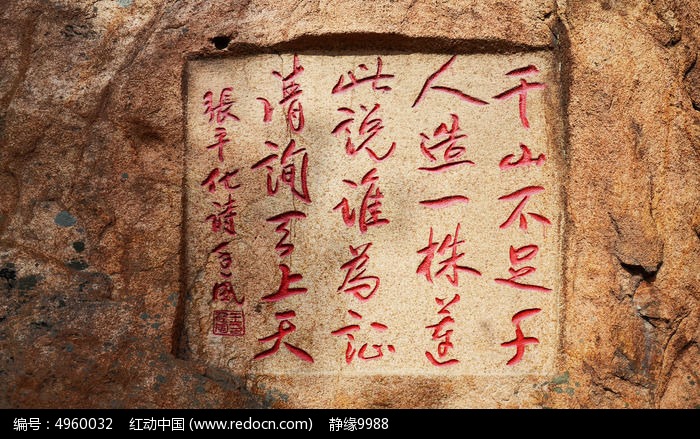 千山不足千
人造一株莲
此说谁為证
请询天上天
張平化诗
编号：4960032 红动中国 (www.redocn.com) 静缘9988